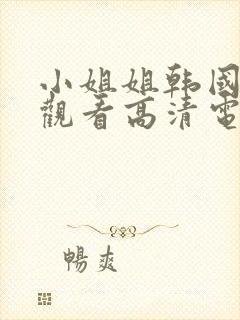 小姐姐韩國
觀看高清電
暢爽